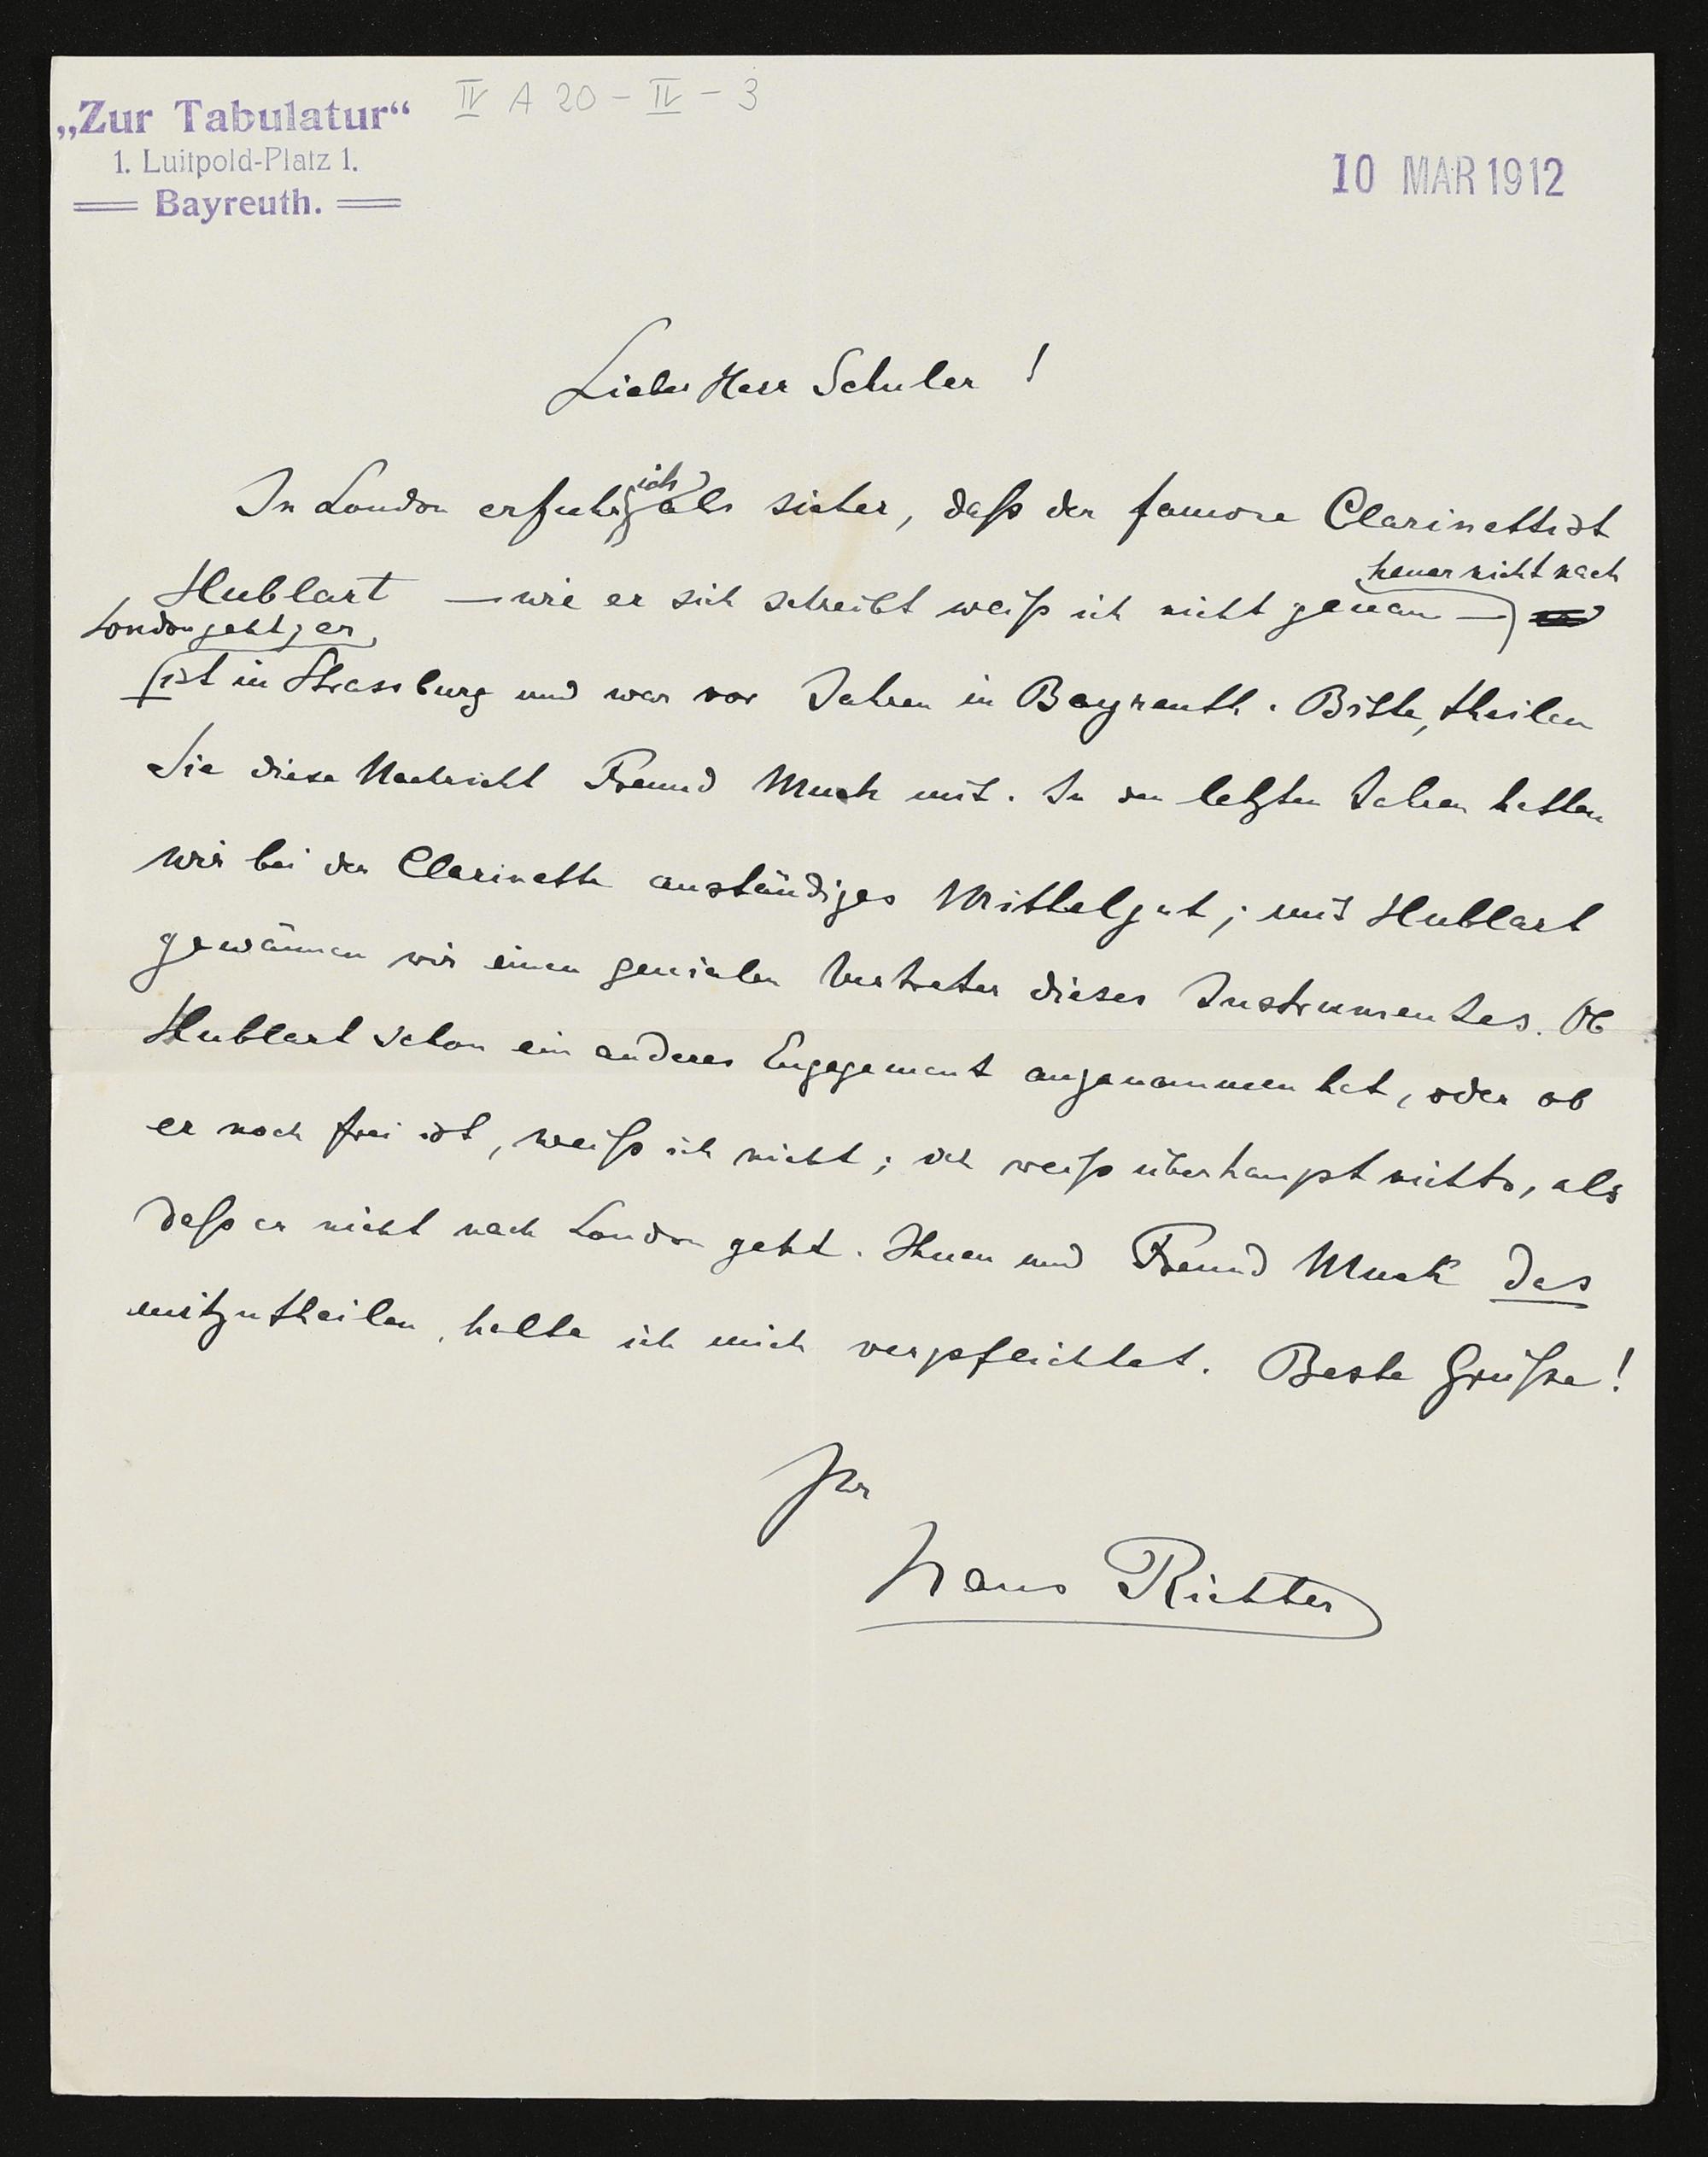 „Zur Tabulatur“
1. Luitpold-Platz 1.
Bayreuth.
IV A 20 - IV - 3
10 MAR 1912
Lieber Herr Schuler !
In London erfuhr ich als sicher, daß der famose Clarinettist
Hublart — wie er sich schreibt weiß ich nicht genau — heuer nicht nach
London geht; er
ist in Strassburg und war vor Jahren in Bayreuth. Bitte, theilen
Sie diese Nachricht Freund Muck mit. In den letzten Jahren hatten
wir bei der Clarinette anständiges Mittelgut; mit Hublart
gewännen wir einen genialen Vertreter dieses Instrumentes. Ob
Hublart schon ein anderes Engagement angenommen hat, oder ob
er noch frei ist, weiß ich nicht; ich weiß überhaupt nichts, als
daß er nicht nach London geht. Ihnen und Freund Muck das
mitzutheilen, halte ich mich verpflichtet. Beste Grüße!
Ihr
Hans Richter